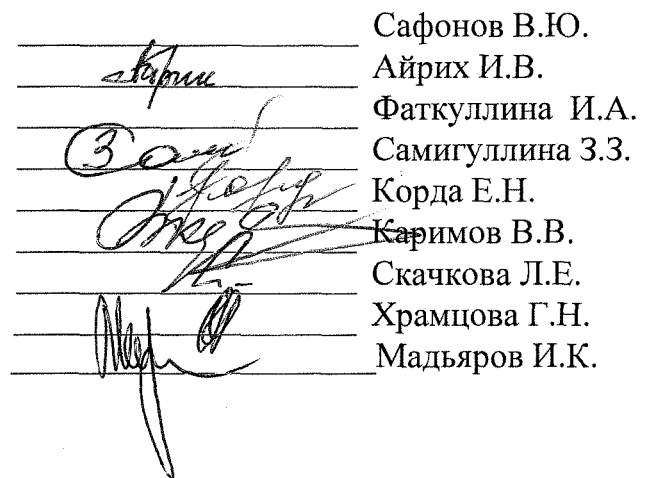 Сафонов В.Ю.
Айрих И.В.
Фаткуллина И.А.
Самигуллина З.З.
Корда Е.Н.
Каримов В.В.
Скачкова Л.Е.
Храмцова Г.Н.
Мадьяров И.К.